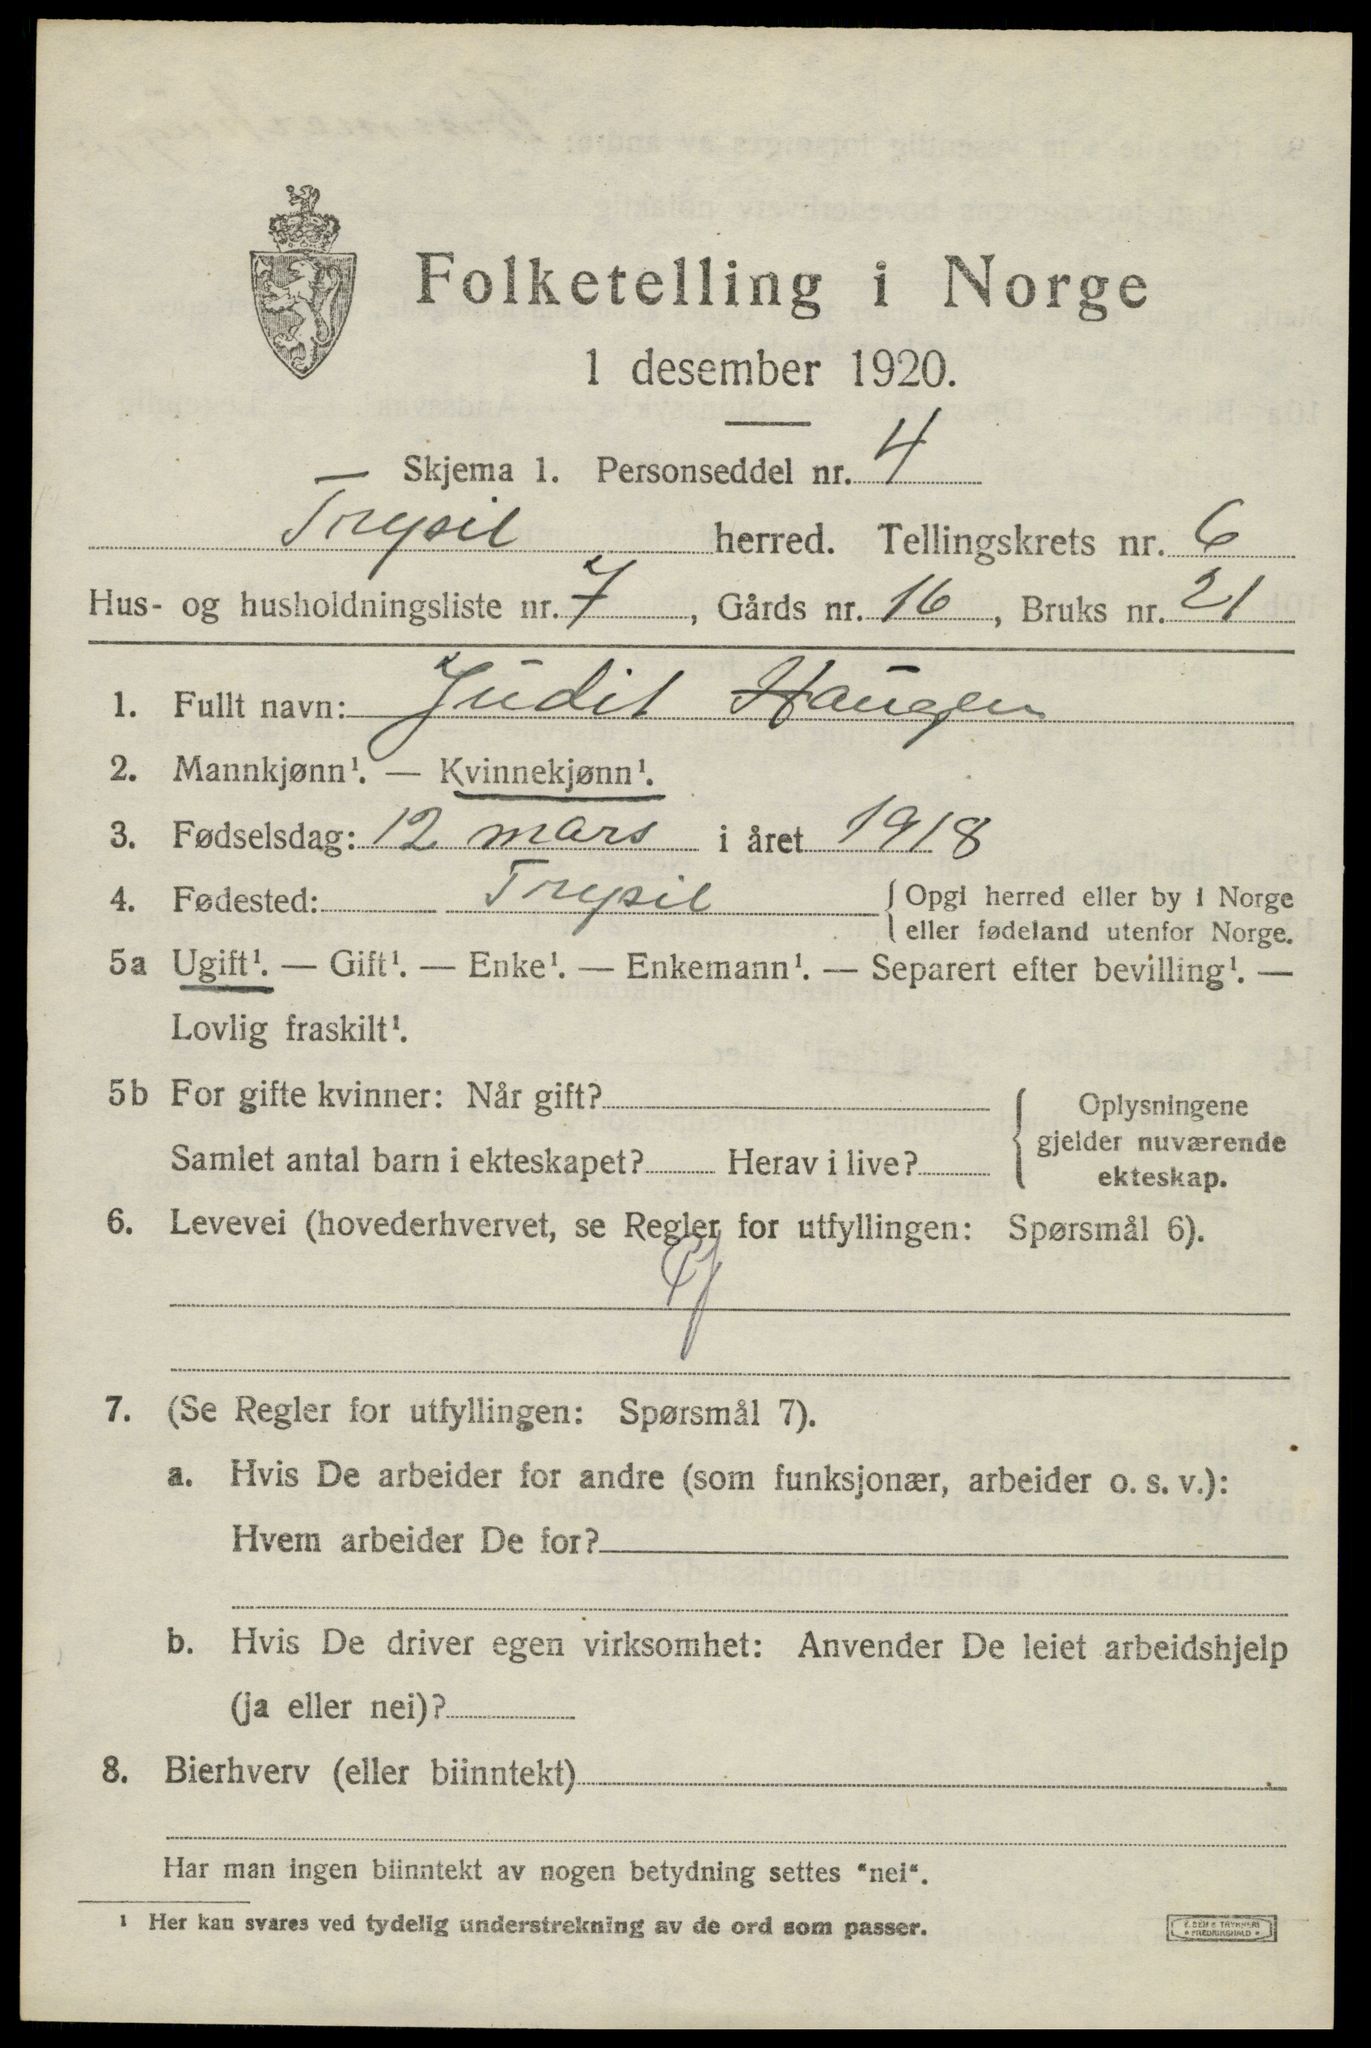 Folketelling i Norge
1 desember 1920.
Skjema 1. Personseddel nr. 4
Trysil herred. Tellingskrets nr. 6
Hus- og husholdningsliste nr. 7, Gårds nr. 16, Bruks nr. 21
1. Fullt navn: Judit Haugen
2. Mannkjønn¹. — Kvinnekjønn¹.
3. Fødselsdag: 12 mars i året 1918
4. Fødested: Trysil { Opgi herred eller by i Norge
eller fødeland utenfor Norge.
5a Ugift¹. — Gift¹. — Enke¹. — Enkemann¹. — Separert efter bevilling¹. —
Lovlig fraskilt¹.
5b For gifte kvinner: Når gift? { Oplysningene
gjelder nuværende
ekteskap.
Samlet antal barn i ekteskapet? Herav i live?
6. Levevei (hovederhvervet, se Regler for utfyllingen: Spørsmål 6).
7. (Se Regler for utfyllingen: Spørsmål 7).
a. Hvis De arbeider for andre (som funksjonær, arbeider o. s. v.):
Hvem arbeider De for?
b. Hvis De driver egen virksomhet: Anvender De leiet arbeidshjelp
(ja eller nei)?
8. Bierhverv (eller biinntekt)
Har man ingen biinntekt av nogen betydning settes "nei".
¹ Her kan svares ved tydelig understrekning av de ord som passer.